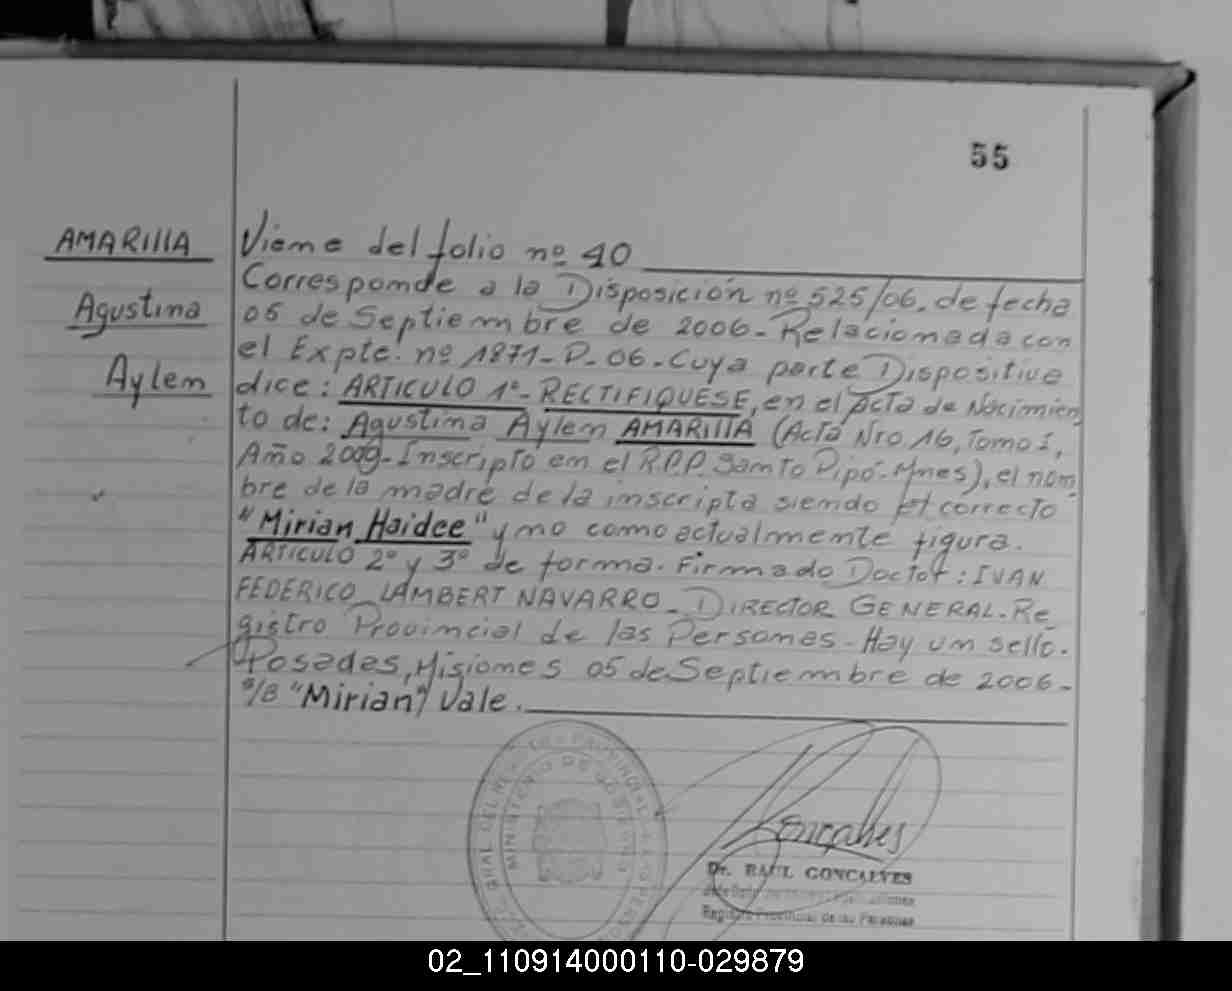 55
AMARILLA
Agustina
Aylem
Viene del folio nº 40
Corresponde a la Disposición nº 525/06. de fecha
05 de Septiembre de 2006- Relacionada con
el Expte. nº 1871-D-06-Cuya parte Dispositiva
dice: ARTICULO 1º- RECTIFIQUESE, en el Acta de Nacimien
to de: Agustina Aylem AMARILLA (Acta Nro 16, Tomo I,
Año 2000-Inscripto en el R.P.P. Santo Pipó-Mnes), el nom
bre de la madre de la inscripta siendo el correcto
"Mirian Haidee" y no como actualmente figura.
ARTICULO 2º y 3º de forma. Firmado Doctor: IVAN
FEDERICO LAMBERT NAVARRO- DIRECTOR GENERAL-Re_
gistro Provincial de las Personas-Hay un sello.
Posadas, Misiones 05 de Septiembre de 2006-
s/B "Mirian" Vale.
MINISTERIO DE GOBIERNO
Goncalves
Dr. RAUL GONCALVES
Registro Provincial de las Personas
02_110914000110-029879